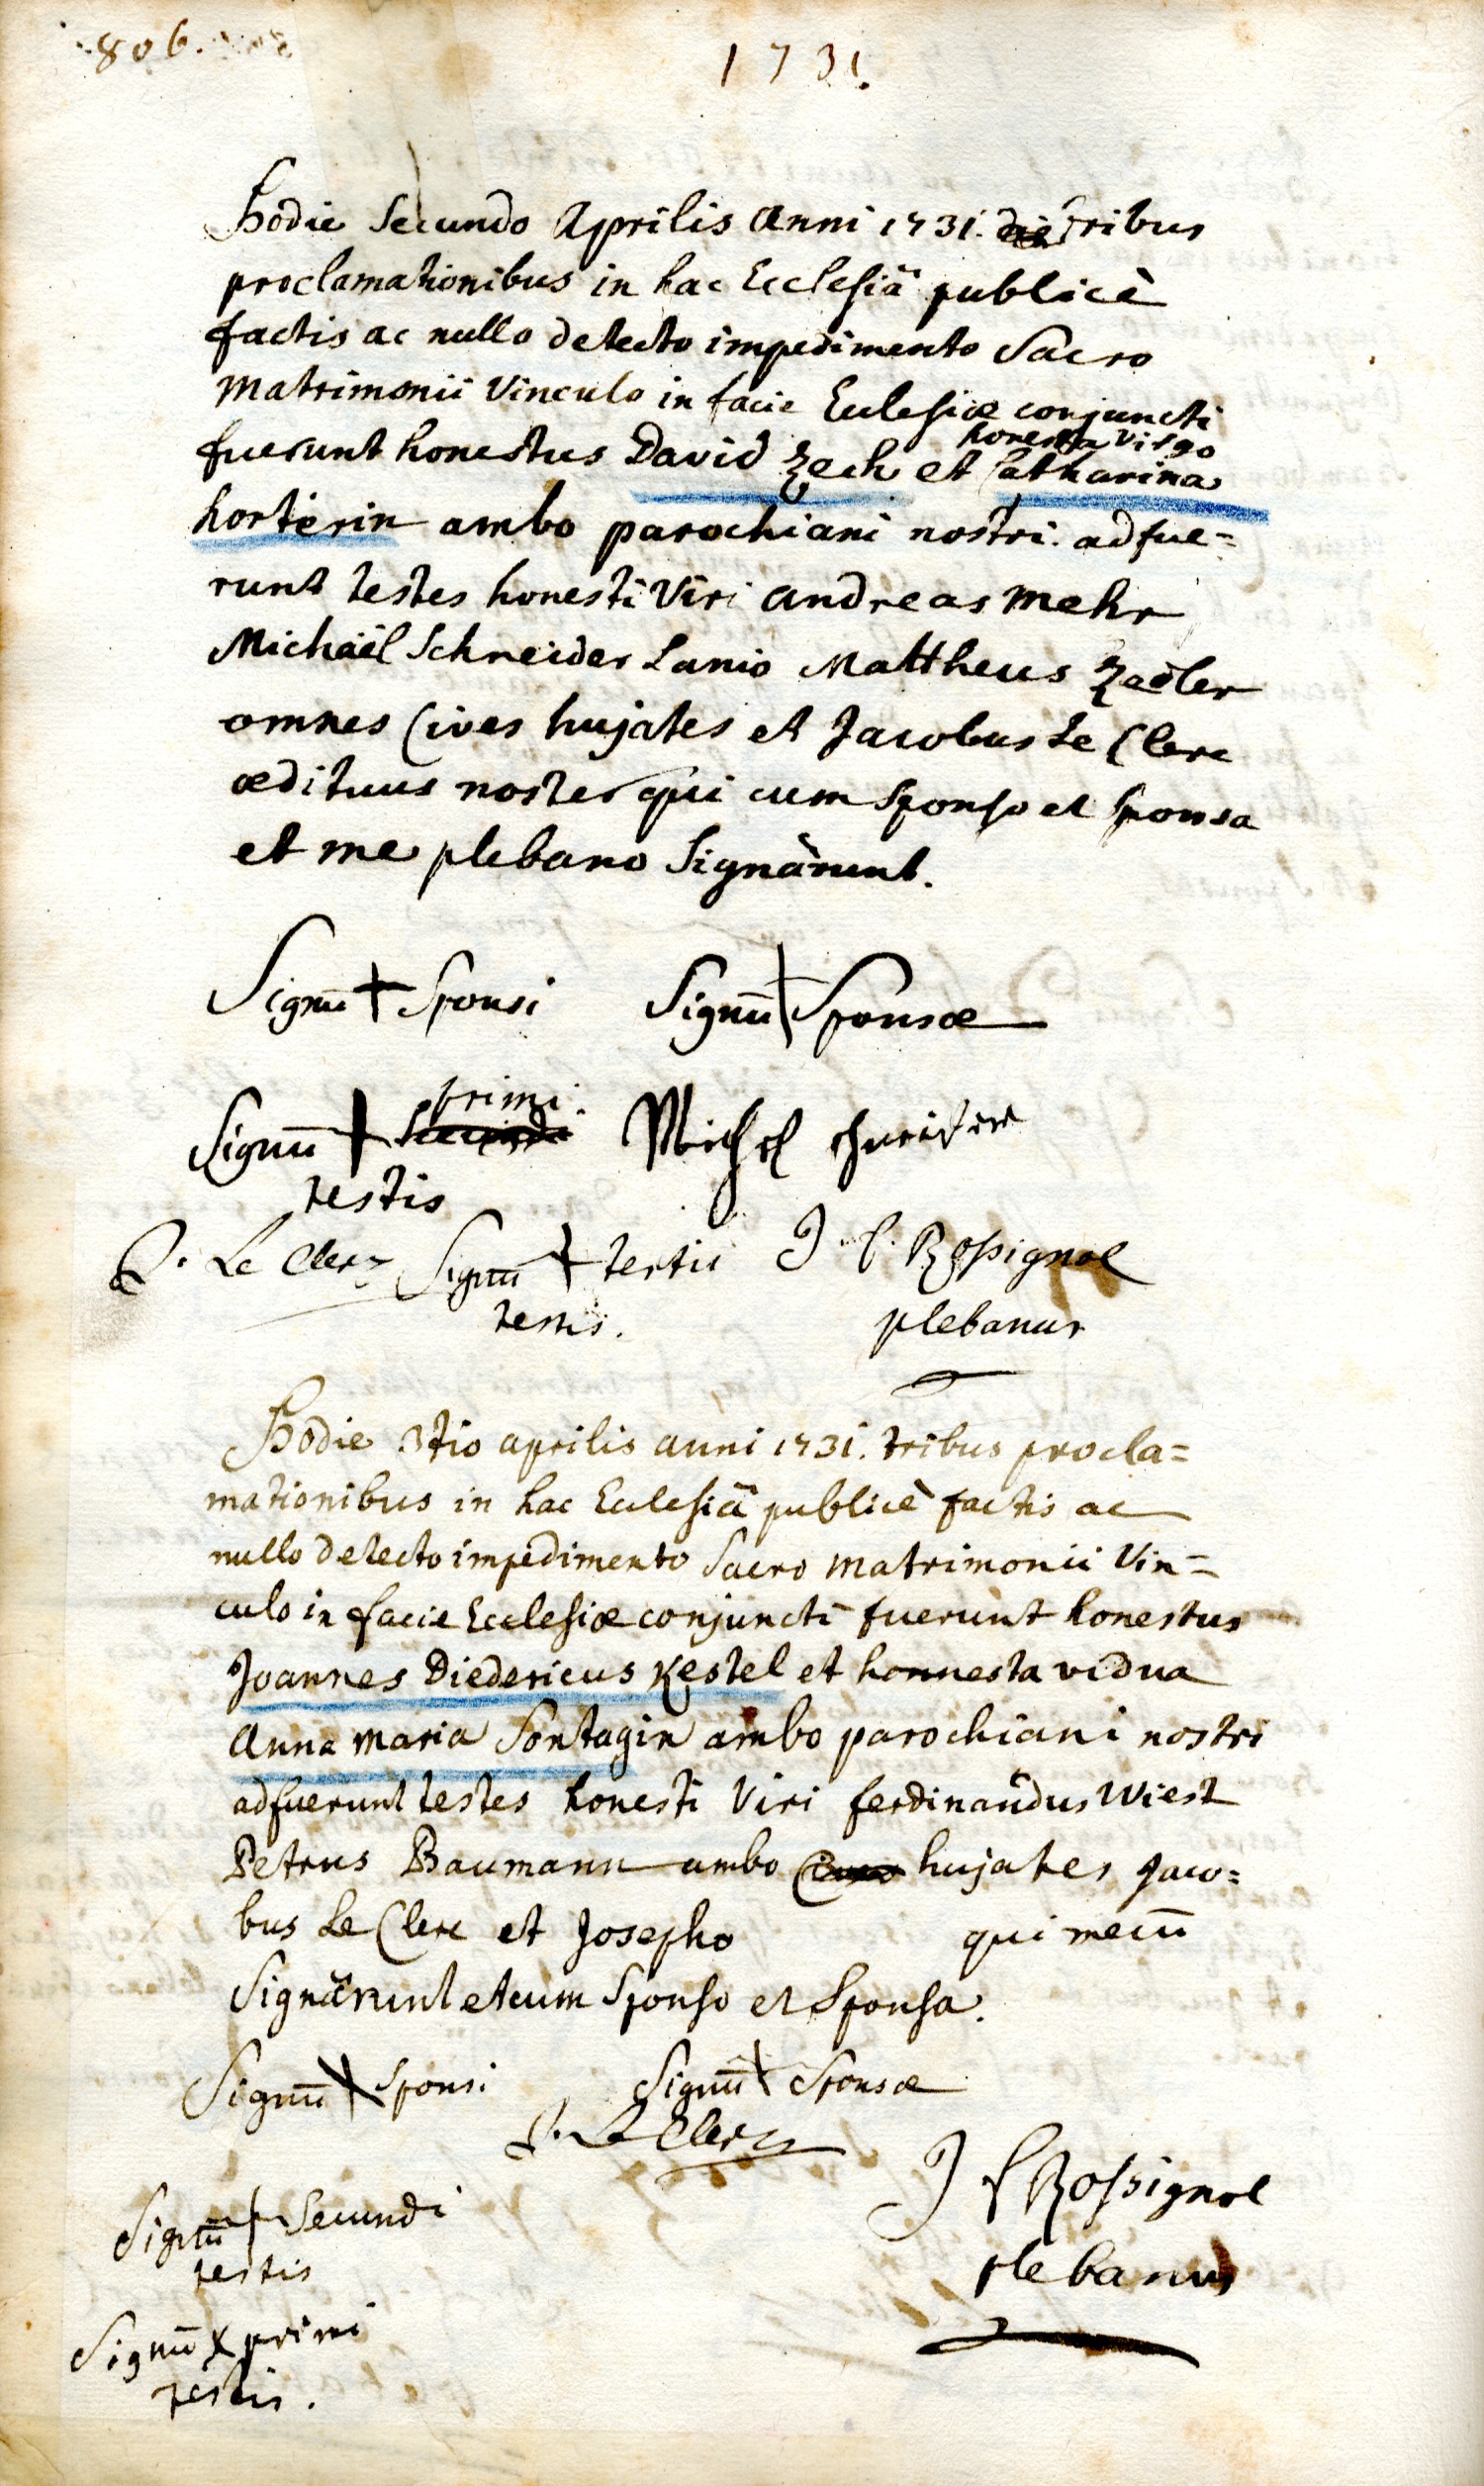 806.
1731.
Hodie Secundo Aprilis Anni 1731. Tribus
proclamationibus in hac Ecclesiâ publicè
factis ac nullo detecto impedimento Sacro
Matrimonii Vinculo in facie Ecclesiæ conjuncti
honesta Virgo
fuerunt honestus David Zech et Catharina
horterin ambo parochiani nostri. adfue=
runt testes honesti Viri Andreas Mehr
Michaël Schneider Lanio Mattheus Zedler
omnes Cives hujates et Jacobus Le Clerc
ædituus noster qui cum Sponso et Sponsa
et me plebano Signârunt.
Signū + Sponsi Signū + Sponsæ
primi
Signū + Secundi Michel
testis
J. Le Clerc Signū + tertii J C Rossignol
testis. plebanus
Hodie 3tio aprilis anni 1731. tribus procla=
mationibus in hac Ecclesiâ publicè factis ac
nullo detecto impedimento Sacro Matrimonii Vin=
culo in facie Ecclesiæ conjuncti fuerunt honestus
Joannes Diedericus Kestel et honnesta vidua
Anna Maria Sontagin ambo parochiani nostri
adfuerunt testes honesti Viri ferdinandus Wiest
Petrus Baumann ambo hujates Jaco=
bus Le Clerc et Josepho qui mecū
Signârunt et cum Sponso et Sponsa.
Signū + Sponsi Signū + Sponsæ
J. Le Clerc
J C Rossignol
Signū + Secundi
testis plebanus
Signū x primi
testis.